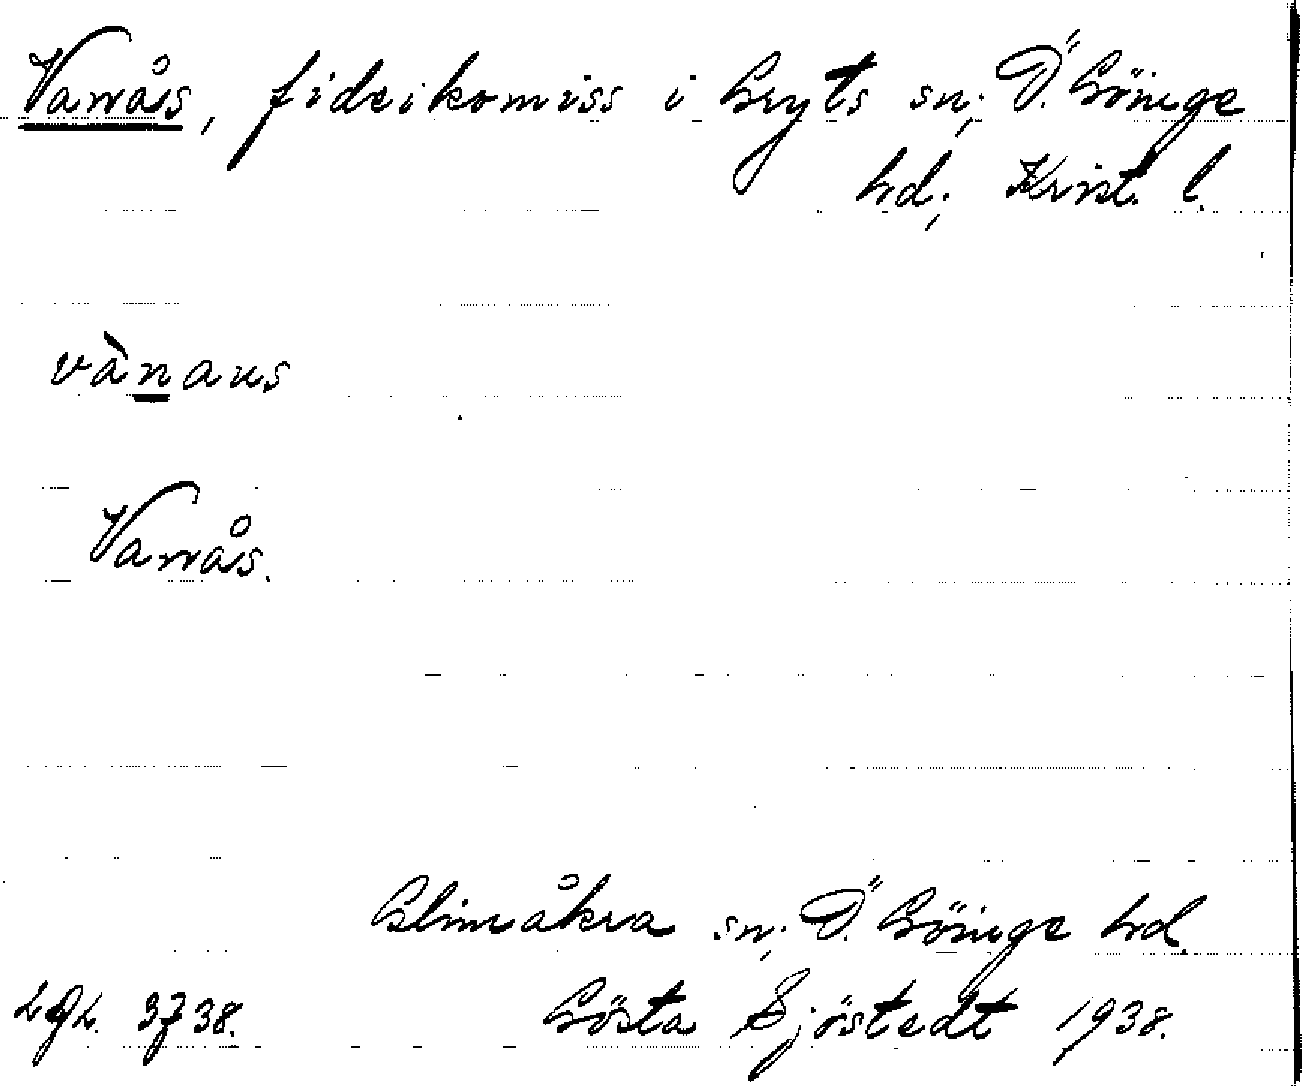 Vanås, fideikomiss i Gryts sn; Ö. Göinge
hd; Krist. l.
vànaus
Vanås.
Glimåkra sn; Ö. Göinge hd.
Gösta Sjöstedt 1938.